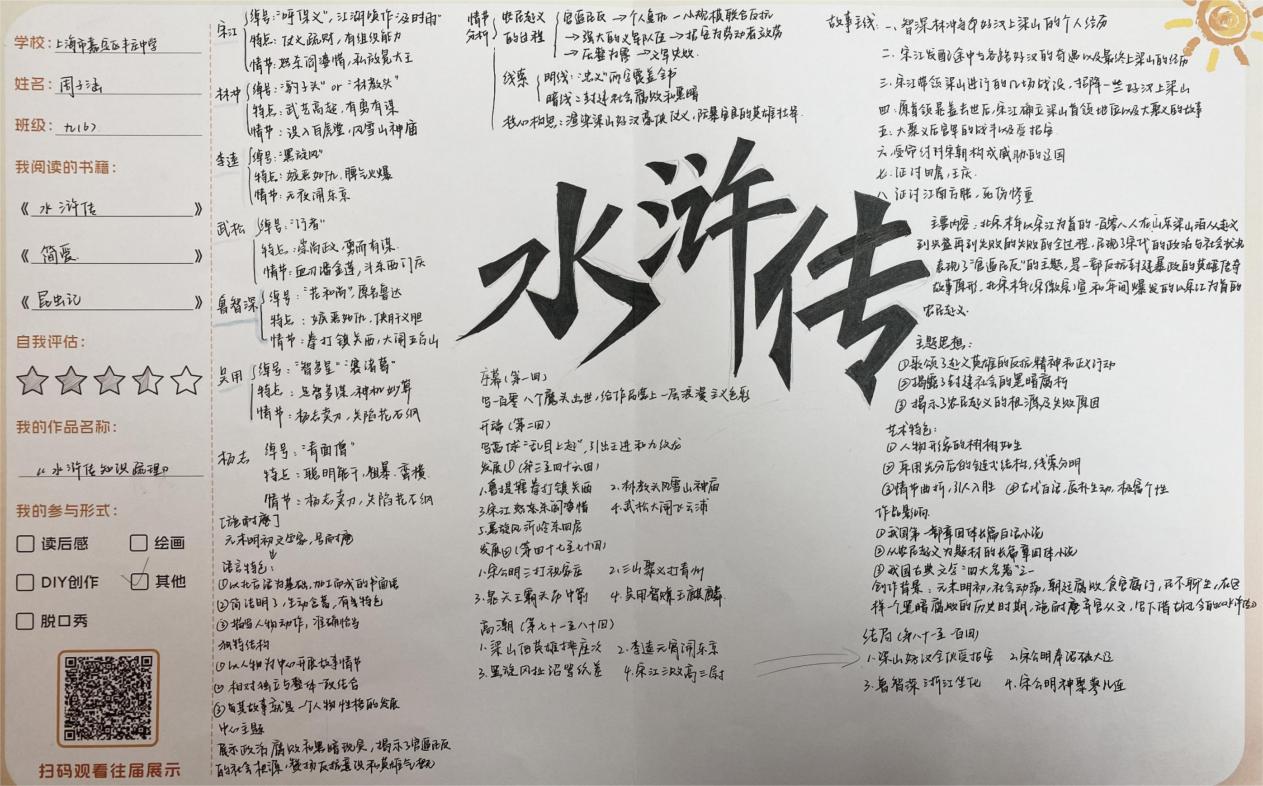 学校：上海市嘉定区丰庄中学
姓名：周子涵
班级：九(6)
我阅读的书籍：
《 水浒传 》
《 简爱 》
《 昆虫记 》
自我评估：
我的作品名称：
《水浒传知识梳理》
我的参与形式：
读后感 绘画
DIY创作 其他
脱口秀
扫码观看往届展示
宋江
绰号："呼保义"，江湖俱作"及时雨"
特点：仗义疏财，有组织能力
情节：怒杀阎婆惜，私放晁天王
林冲
绰号："豹子头" or "林教头"
特点：武艺高超，有勇有谋
情节：误入白虎堂，风雪山神庙
李逵
绰号："黑旋风"
特点：嫉恶如仇，脾气火爆
情节：元夜闹东京
武松
绰号："行者"
特点：崇尚正义，勇而有谋
情节：血刃潘金莲，斗杀西门庆
鲁智深
绰号："花和尚"，原名鲁达
特点：嫉恶如仇，侠肝义胆
情节：拳打镇关西，大闹五台山
吴用
绰号："智多星" "赛诸葛"
特点：足智多谋，神机妙算
情节：杨志卖刀，失陷花石纲
杨志
绰号："青面兽"
特点：聪明能干，粗暴、蛮横
情节：杨志卖刀，失陷花石纲
[施耐庵]
元末明初文学家，号耐庵
语言特色：
①以北方话为基础，加工而成的书面语
②简洁明了，生动含蓄，有气特色
③描写人物动作，准确恰当
独特结构
①以人物为中心开展故事情节
②相对独立与整体一致结合
③每其故事就是一个人物性格的发展
中心主题
展示政治腐败和黑暗现实，揭示了官逼民反
的社会根源，赞扬反抗意识和英雄气概
情节分析
农民起义的过程
官逼民反→个人复仇→小规模联合反抗
→强大的义军队伍→招安为劳动者效劳
→征整为零→义军失败.
线索
明线："忠义"两全覆盖全书
暗线：封建社会腐败和黑暗
核心构思：渲染梁山好汉豪侠仗义，除暴安良的英雄壮举.
水浒传
序幕(第一回)
写一百零八个魔头出世，给作品蒙上一层浪漫主义色彩
开端(第二回)
写高俅"乱自上起"，引出王进和九纹龙
发展①(第三至四十六回)
1.鲁提辖拳打镇关西 2.林教头风雪山神庙
3.宋江怒杀阎婆惜 4.武松大闹飞云浦
5.黑旋风沂岭杀四虎
发展②(第四十七至七十回)
1.宋公明三打祝家庄 2.三山聚义打青州
3.晁天王曾头市中箭 4.吴用智赚玉麒麟
高潮(第七十一至八十回)
1.梁山泊英雄排座次 2.李逵元宵闹东京
3.黑旋风扯诏骂钦差 4.宋江三败高三尉
故事主线：一、智深林冲每部好汉上梁山的个人经历
二、宋江发配途中与各路好汉的奇遇以及最终上梁山的经历
三、宋江带领梁山进行的几场战役，招降一些好汉上梁山
四、原首领晁盖去世后，宋江确立梁山首领地位以及大聚义的故事
五、大聚义后官军的战斗以及受招安
六、受命讨对宋朝构成威胁的辽国
七、征讨田虎，王庆.
八、征讨江南方腊，死伤惨重
主要内容：北宋末年以宋江为首的一百零八人在山东梁山泊从起义
到兴盛再到失败的失败的全过程，展现了宋代的政治与社会状况
表现了"官逼民反"的主题，是一部反抗封建暴政的英雄传奇
故事原形，北宋末年(宋徽宗)宣和年间爆发的以宋江为首的
农民起义.
主题思想：
①歌颂了起义英雄的反抗精神和正义行动
②揭露了封建社会的黑暗腐朽
③揭示了农民起义的根源及失败原因
艺术特色：
①人物形象的栩栩如生
②采用先分后合的链式结构，线索分明
③情节曲折，引人入胜 ④古代白话，质朴生动，极富个性
作品影响
①我国第一部章回体长篇白话小说
②以农民起义为题材的长篇章回体小说
③我国古典文学"四大名著"之一
创作背景：元末明初，社会动荡，朝廷腐败，贪官腐行，民不聊生，在这
样一个黑暗腐败的历史时期，施耐庵弃官从文，写下借古讽今的《水浒传》
结局(第八十一至一百回)
1.梁山好汉全伙受招安 2.宋公明奉诏破大辽
3.鲁智深浙江坐化 4.宋公明神聚蓼儿洼